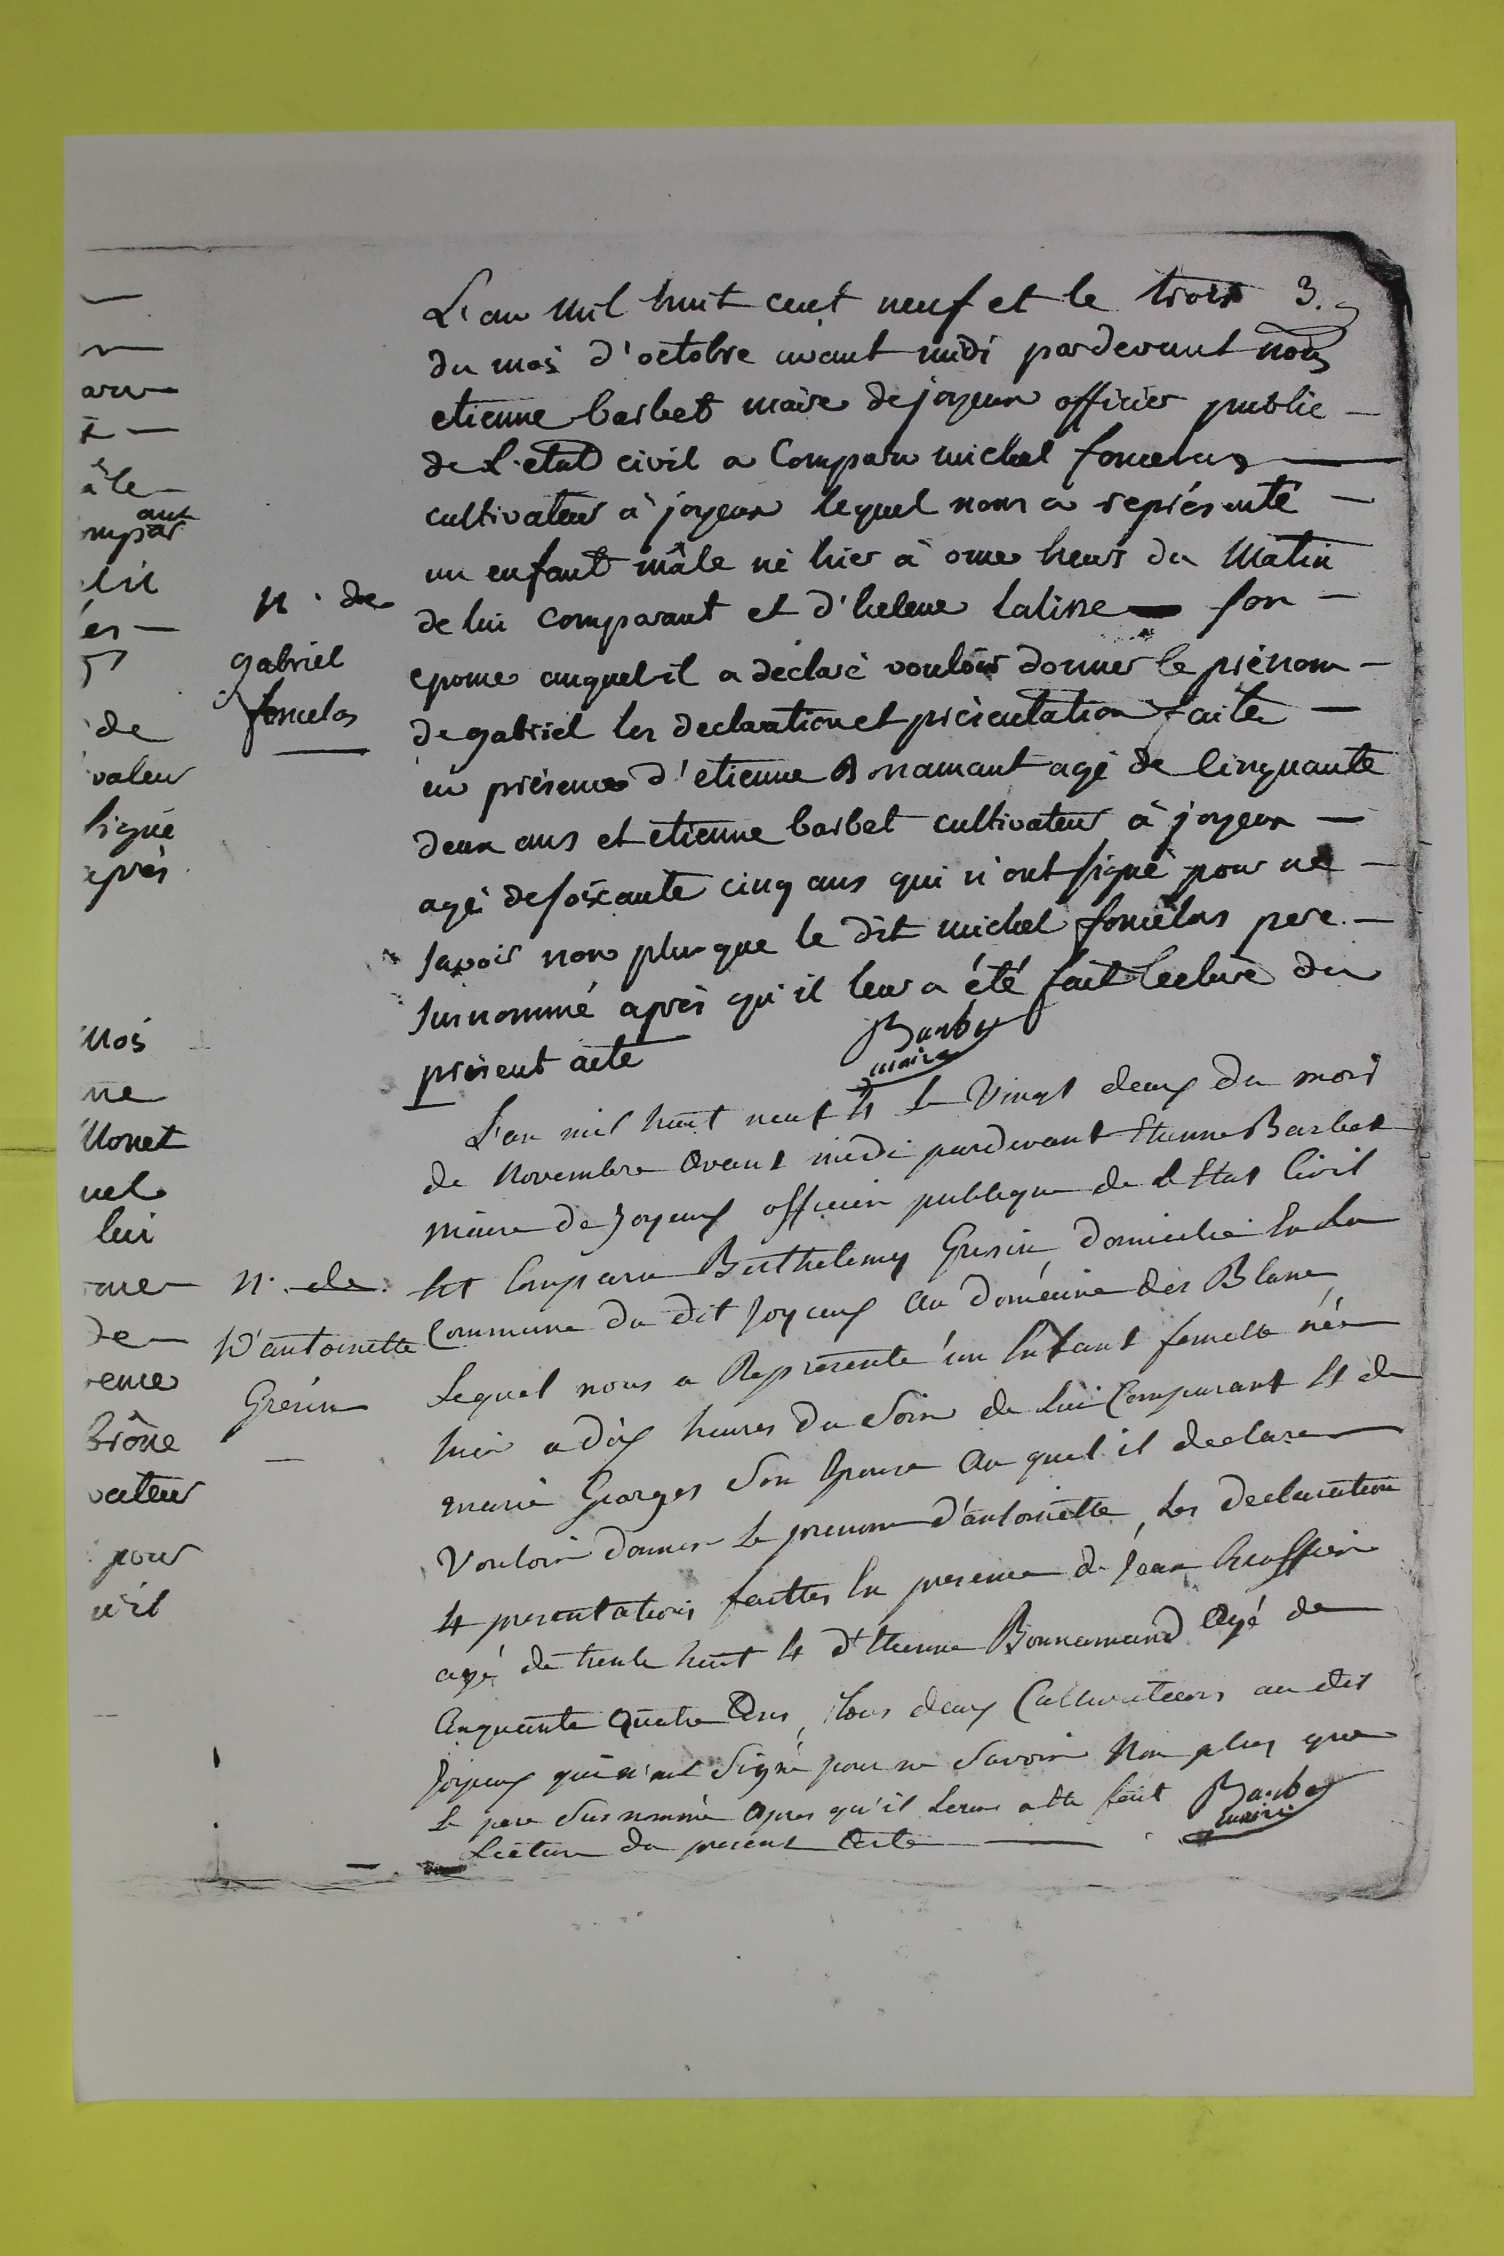 L'an mil huit cent neuf et le trois 3.
du mois d'octobre avant midi pardevant nous
etienne barbet maire de joyeux officier public
de L'etat civil a Comparu michel foncelas
cultivateur à joyeux lequel nous a représenté
un enfant mâle né hier à onze heurs du Matin
de lui comparant et d'helene lalisse son
epouse auquel il a déclaré vouloir donner le prénom
de gabriel les declaration et présentation faite
en présence d'etienne Bonamant agé de Cinquante
deux ans et etienne barbet cultivateur à joyeux
agé de soixante cinq ans qui n'ont signé pour ne
savoir non plus que le dit michel foncelas pere
surnommé après qu'il leur a été fait lecture du
présent acte
Barbet
maire
n. de
gabriel
foncelas
L'an mil huit neuf et Le Vingt deux du mois
de Novembre avant midi pardevant Etienne Barbet
Maire de Joyeux officier publique de L'Etat Civil
Est Comparu Berthelemy Gresin domicilié En La
Commune du dit Joyeux au doméinne des Blanc
Lequel nous a Représenté un Enfant femelle née
hier a dix heures du Soir de Lui Comparant et de
marie Georges Son Epouse Au quel il declare
Vouloir donner Le prenom d'antoinette, Les declaration
et presentations faittes En presence de Jean
agé de trente huit et d'Etienne Bonnamand Agé de
Cinquante Quatre Ans, tous deux Cultivateurs au dit
Joyeux qui n'ont Signé pour ne Savoir Non plus que
Le pere Sus nommé Apres qu'il Leurs a été fait
Lecture du present Acte
Barbet
maire
N. de
D'antoinette
Gresin
aut
de
valeur
signé
après
Mois
ne
lui
de
vateur
pour